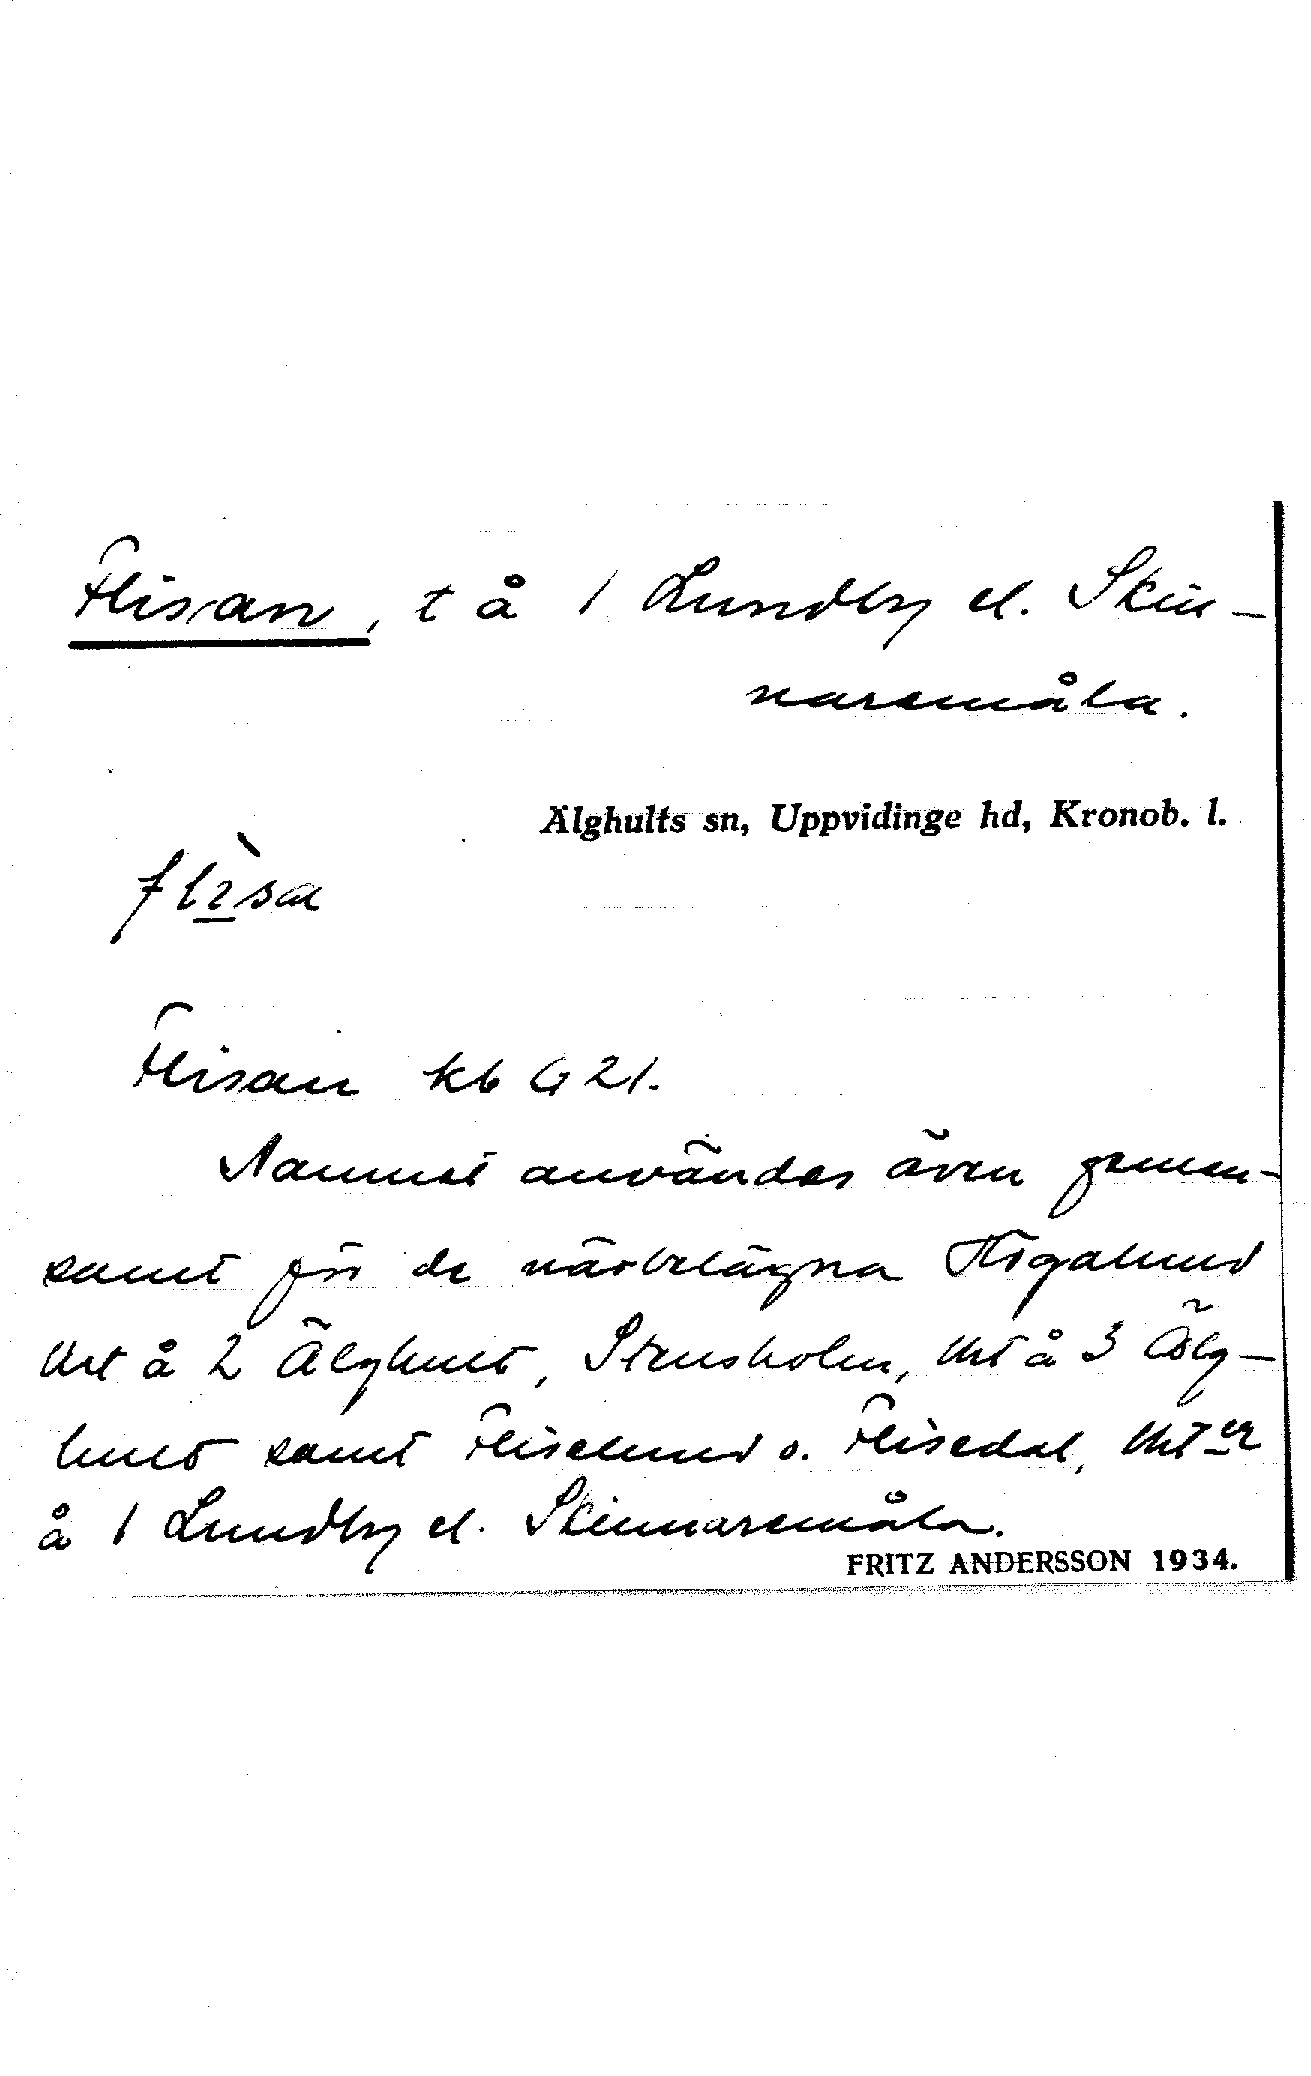 Flisan, t å 1 Lundby el. Skin-
naremåla.
Älghults sn, Uppvidinge hd, Kronob. l.
Flisan kb G 21.
Namnet användes även gemen-
samt för de närbelägna Högalund
lht å 2 Älghult, Stensholm, lht å 3 Älg-
hult samt Fliselund o. Flisedal, lhter
å 1 Lundby el. Skinnaremåla.
FRITZ ANDERSSON 1934.